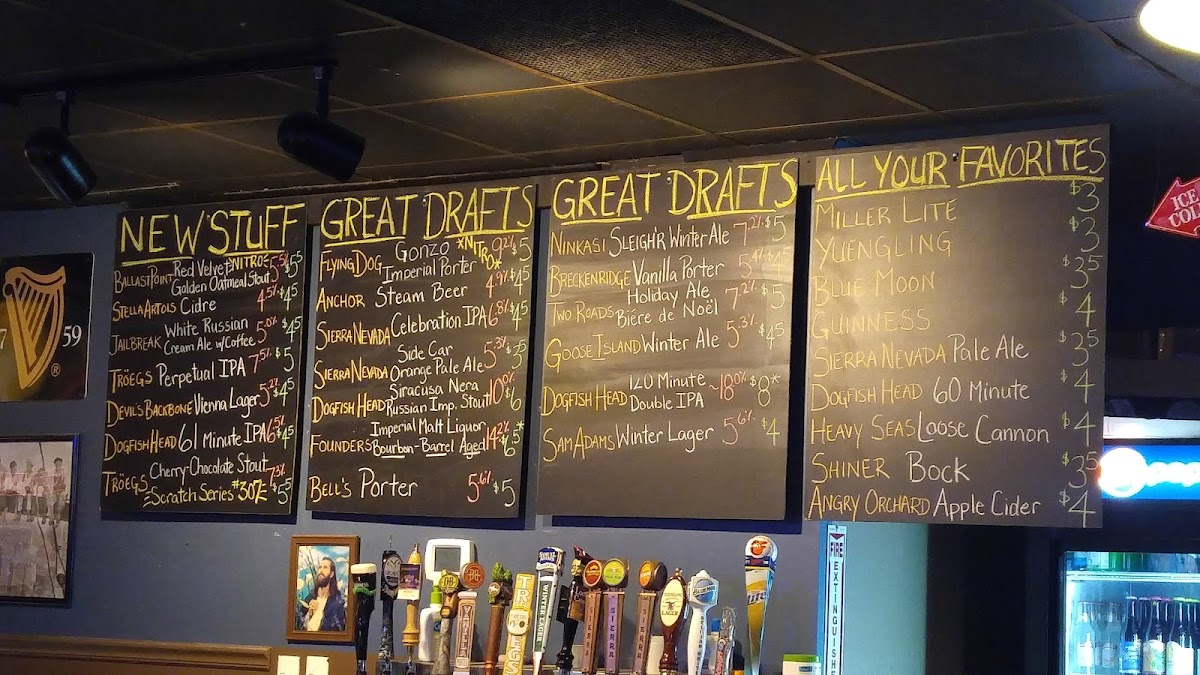 NEW STUFF
BALLAST POINT Red Velvet *NITRO* 5.5% $5.5
Golden Oatmeal Stout
STELLA ARTOIS Cidre 4.5% $4.5
JAILBREAK White Russian 5.0% $4.5
Cream Ale w/Coffee
TRÖEGS Perpetual IPA 7.5% $5
DEVILS BACKBONE Vienna Lager 5.2% $4.5
DOGFISH HEAD 61 Minute IPA 6.5% $4.5
TRÖEGS Cherry-Chocolate Stout 7.3% $5.5
Scratch Series #307
GREAT DRAFTS
FLYING DOG Gonzo *NITRO* 9.2% $5
Imperial Porter
ANCHOR Steam Beer 4.9% $4.5
SIERRA NEVADA Celebration IPA 6.8% $4.5
SIERRA NEVADA Side Car 5.3% $3.5
Orange Pale Ale
DOGFISH HEAD Siracusa Nera 10% $6
Russian Imp. Stout
FOUNDERS Imperial Malt Liquor 14.2% $6.5*
Bourbon-Barrel Aged
BELL'S Porter 5.6% $5
GREAT DRAFTS
NINKASI SLEIGH'R Winter Ale 7.2% $5
BRECKENRIDGE Vanilla Porter 5.4% $4.5
TWO ROADS Holiday Ale 7.2% $5
Biére de Noël
GOOSE ISLAND Winter Ale 5.3% $4.5
DOGFISH HEAD 120 Minute ~18.0% $8*
Double IPA
SAM ADAMS Winter Lager 5.6% $4
ALL YOUR FAVORITES
MILLER LITE $3
YUENGLING $3
BLUE MOON $3.5
GUINNESS $4
SIERRA NEVADA Pale Ale $3.5
DOGFISH HEAD 60 Minute $4
HEAVY SEAS Loose Cannon $4
SHINER BOCK $3.5
ANGRY ORCHARD Apple Cider $4
ICE
COL
59
®
FIRE
EXTINGUISHE
TRŒGS
WINTER LAGER
SIERRA
SIERRA
LAGER
Lite